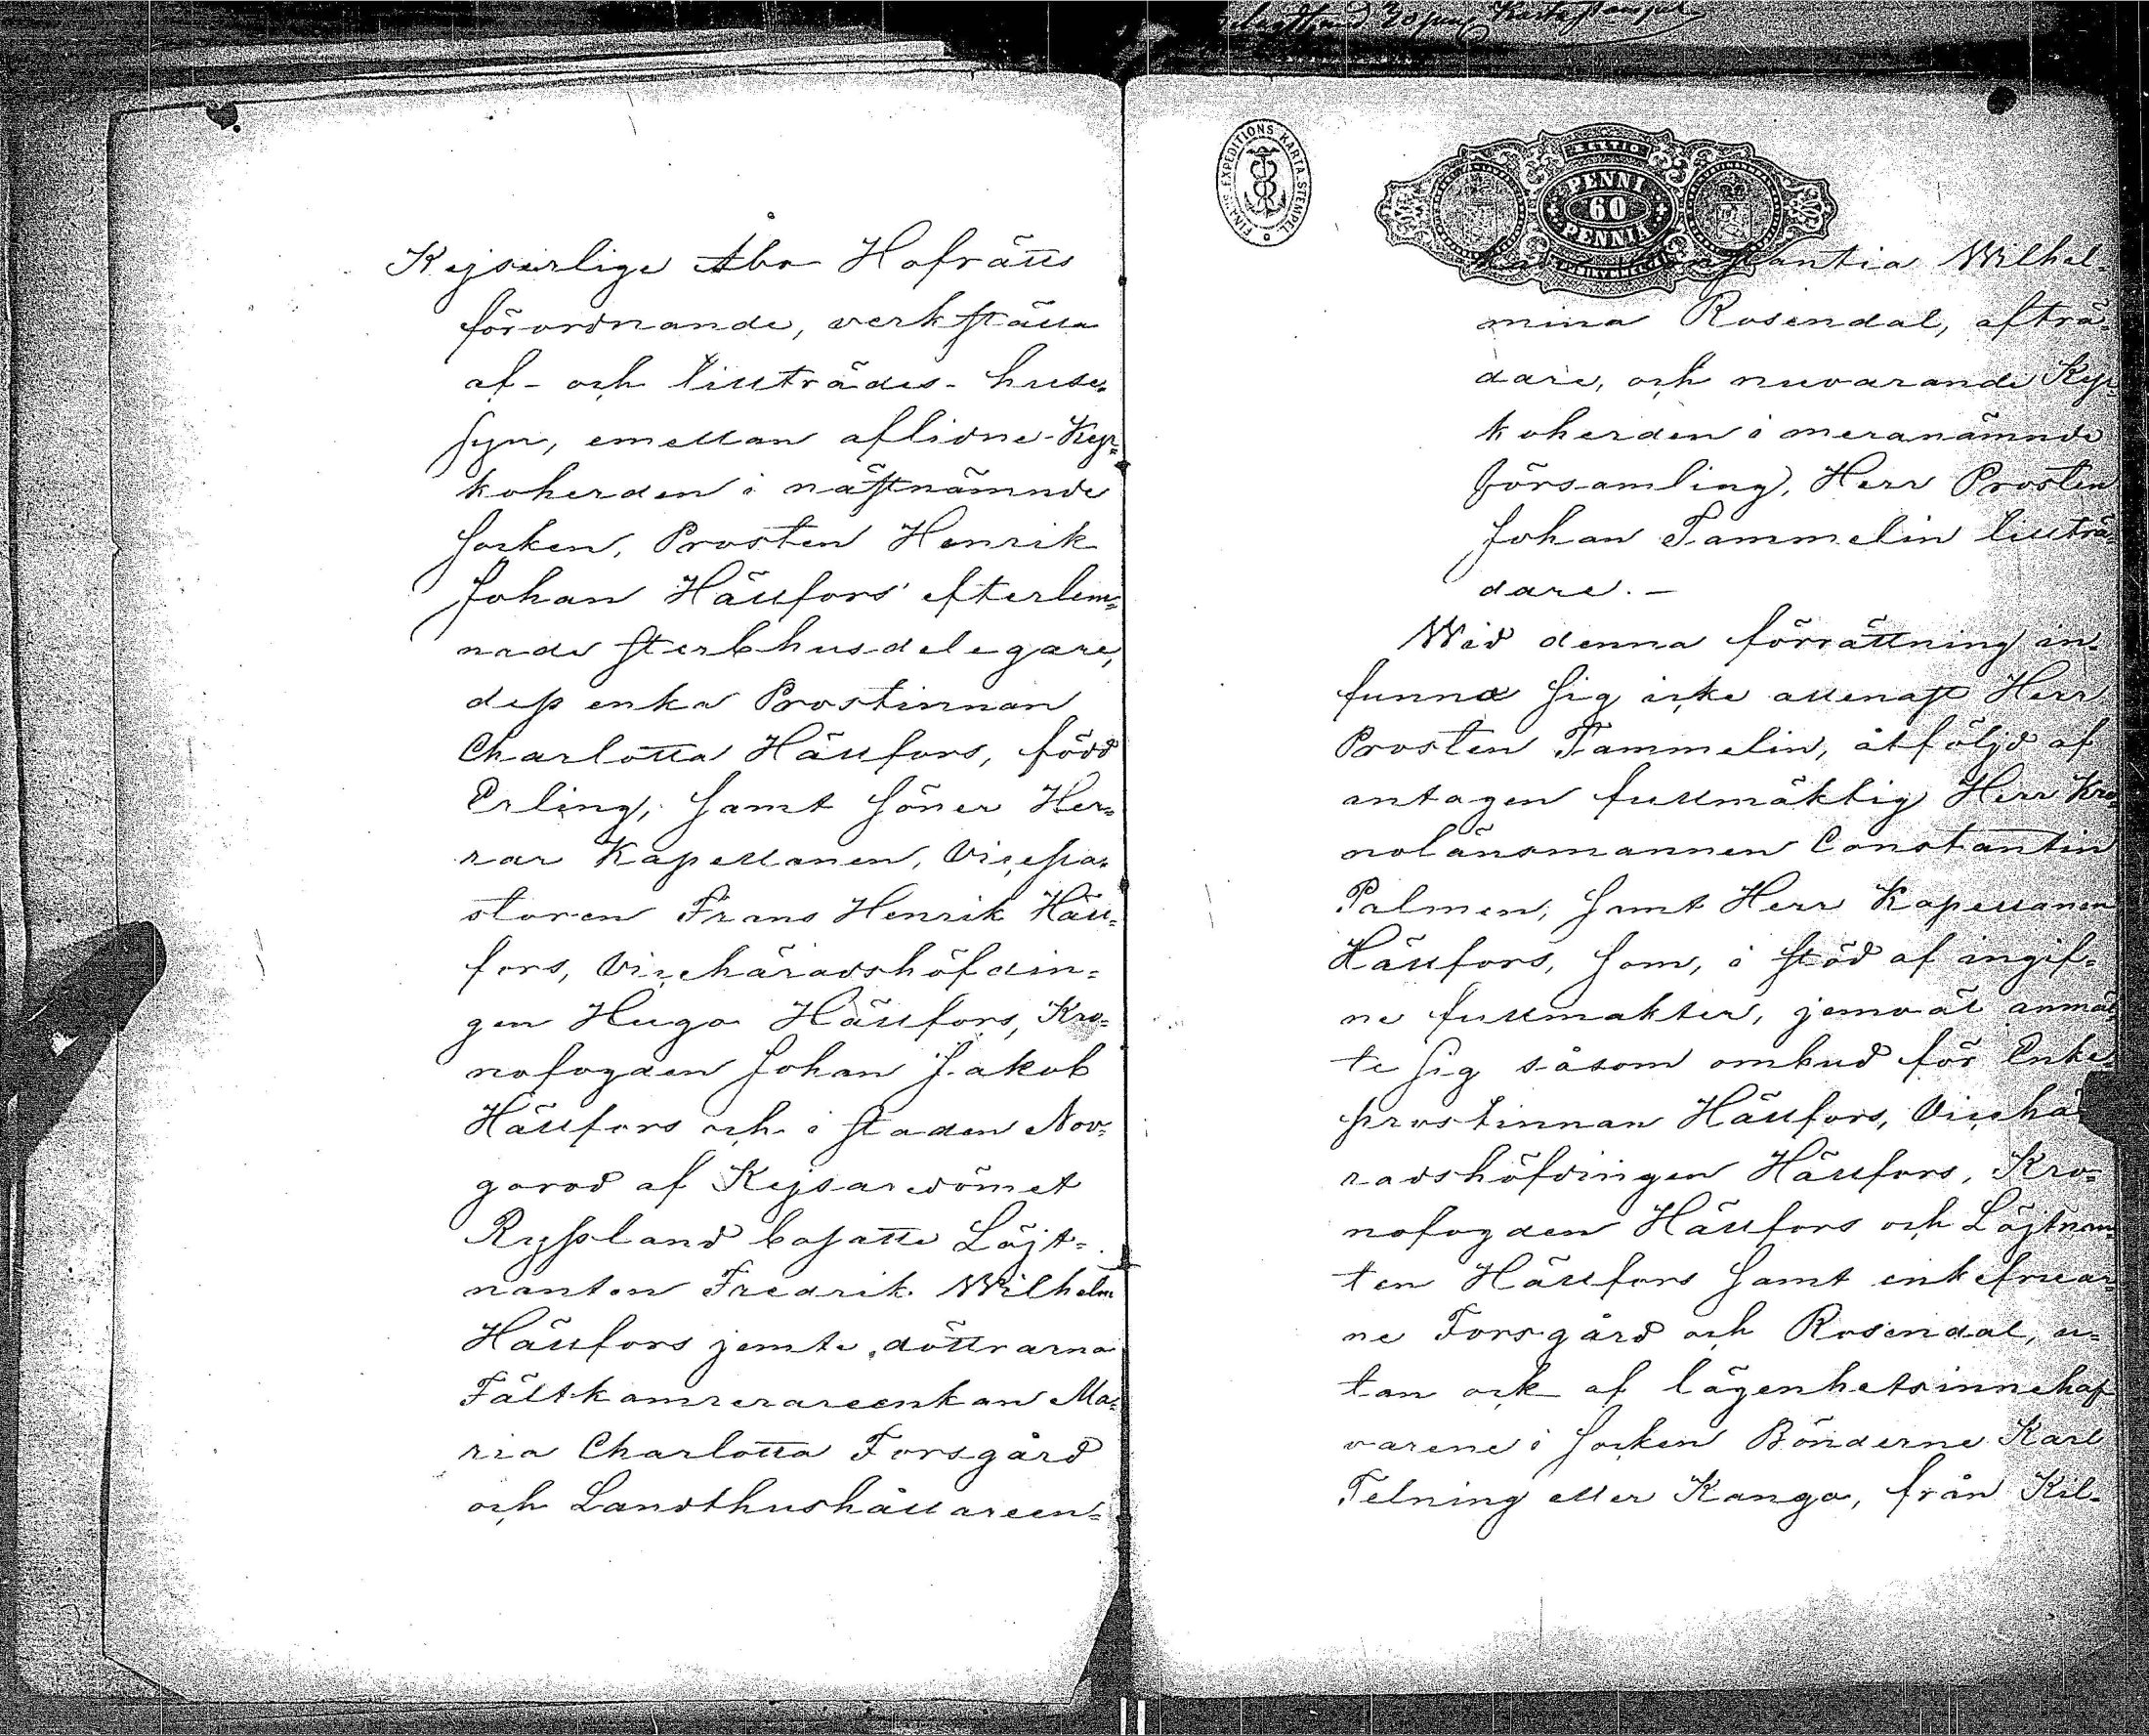 Kejserlige Åbo Hofrätts
förordnande, verkstälda
af- och tillträdes- huse-
syn, emellan aflidne Kyr=
koherden i nästnämnde
socken, Prosten Henrik
Johan Hällfors' efterlem=
nade sterbhusdelegare,
dess enka Prostinnan
Charlotta Hällfors, född
Erling, samt söner Her=
rar Kapellanen, Vicepa=
storen Frans Henrik Häll=
fors, Vicehäradshöfdin=
gen Hugo Hällfors, Kro=
nofogden Johan Jakob
Hällfors och i staden Nov=
gorod af Kejsaredömet
Ryssland bosatte Löjt=
nanten Fredrik Wilhelm
Hällfors jemte döttrarna
Fältkamrerareenkan Ma=
ria Charlotta Forsgård
och Landthushållareen=
20 penni Karta stempel
FINSKA EXPEDITIONS KARTA-STEMPEL
PENNI
60
PENNIÄ
Constantia Wilhel=
mina Rosendal, afträ=
dare, och nuvarande Kyr=
koherden i meranämnde
församling, Herr Prosten
Johan Tammelin tillträ=
dare. —
Wid denna förrättning in=
funno sig icke allenast Herr
Prosten Tammelin, åtföljd af
antagen fullmäktig Herr Kro=
nolänsmannen Constantin
Palmen, samt Herr Kapellanen
Hällfors, som, i stöd af ingif=
ne fullmakter, jemväl anmäl=
te sig såsom ombud för Enke=
prostinnan Hällfors, Vicehä=
radshöfdingen Hällfors, Kro=
nofogden Hällfors och Löjtnan=
ten Hällfors samt enkefruar=
ne Forsgård och Rosendal, u=
tan ock af lägenhetsinnehaf
varene i socken Bönderne Karl
Telning eller Kanga, från Kil=